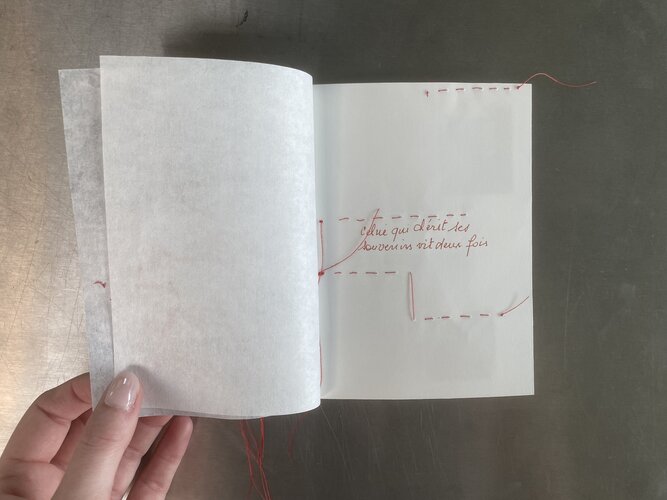 celui qui décrit ses
souvenirs vit deux fois